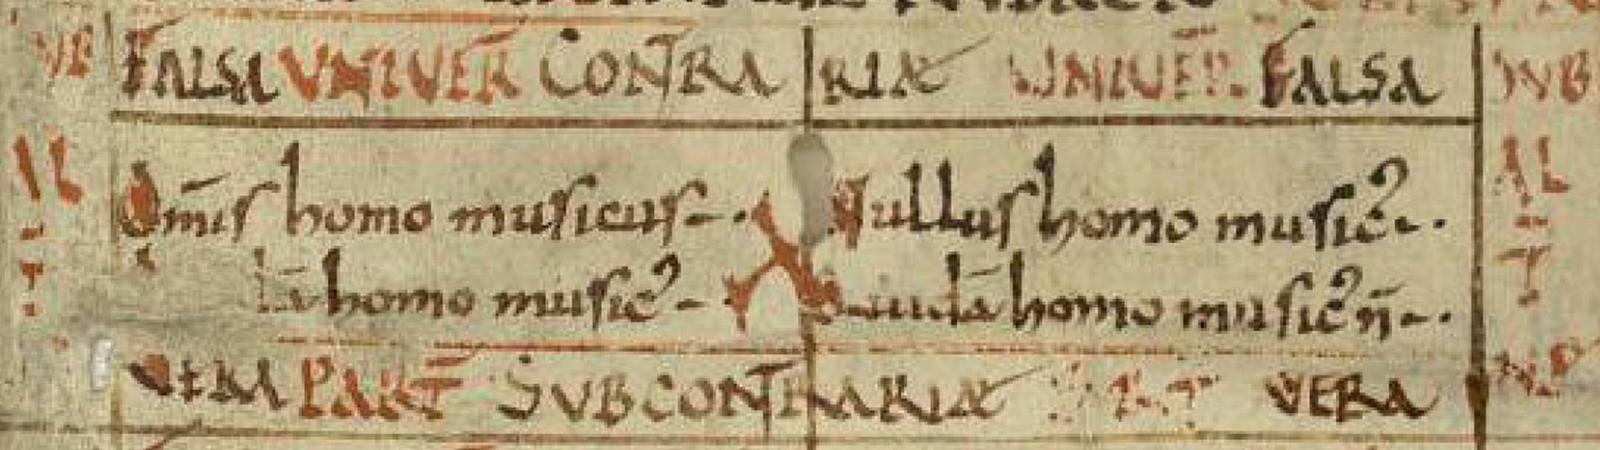 FALSA VNIVER̄ CONTRARIÆ UNIVER̄. FALSA SVB
IL Om̄is homo musicus Nullus homo music̄ʾ IL
lā homo musicʾ dā homo musicʾ n̄ T
VERA PART̄ SVBCONTRARIÆ VERA